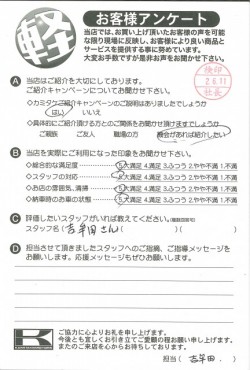 軽
お客様アンケート
当店では、お買い上げ頂いたお客様の声を可能
な限り現場に反映し、お客様により良い商品と
サービスを提供する事に努めています。
大変お手数ですが是非お声をお聞かせ下さい。
検印
2.6.11
社長
A 当店はご紹介を大切にしております。
ご紹介キャンペーンについてお聞かせ下さい。
はい いいえ
ご親族 ご友人 職場の方 機会があれば紹介したい
B 当店を実際にご利用になった印象をお聞かせ下さい。
◇総合的な満足度 5.大満足 4.満足 3.ふつう 2.やや不満 1.不満
◇スタッフの対応 5.大満足 4.満足 3.ふつう 2.やや不満 1.不満
◇お店の雰囲気、清潔 5.大満足 4.満足 3.ふつう 2.やや不満 1.不満
◇納車時のお車の状態 5.大満足 4.満足 3.ふつう 2.やや不満 1.不満
C 評価したいスタッフがいれば教えてください。
スタッフ名( 吉年田さん )( )
D 担当させて頂きましたスタッフへのご指摘、ご指導メッセージを
お願いします。応援メッセージもぜひお聞かせ下さい。
K
ご協力に心よりお礼を申し上げます。
今後とも宜しくお引き立てご愛顧の程お願い申し上げます。
またのご来店を心からお待ちしております。
担当( 吉年田 )